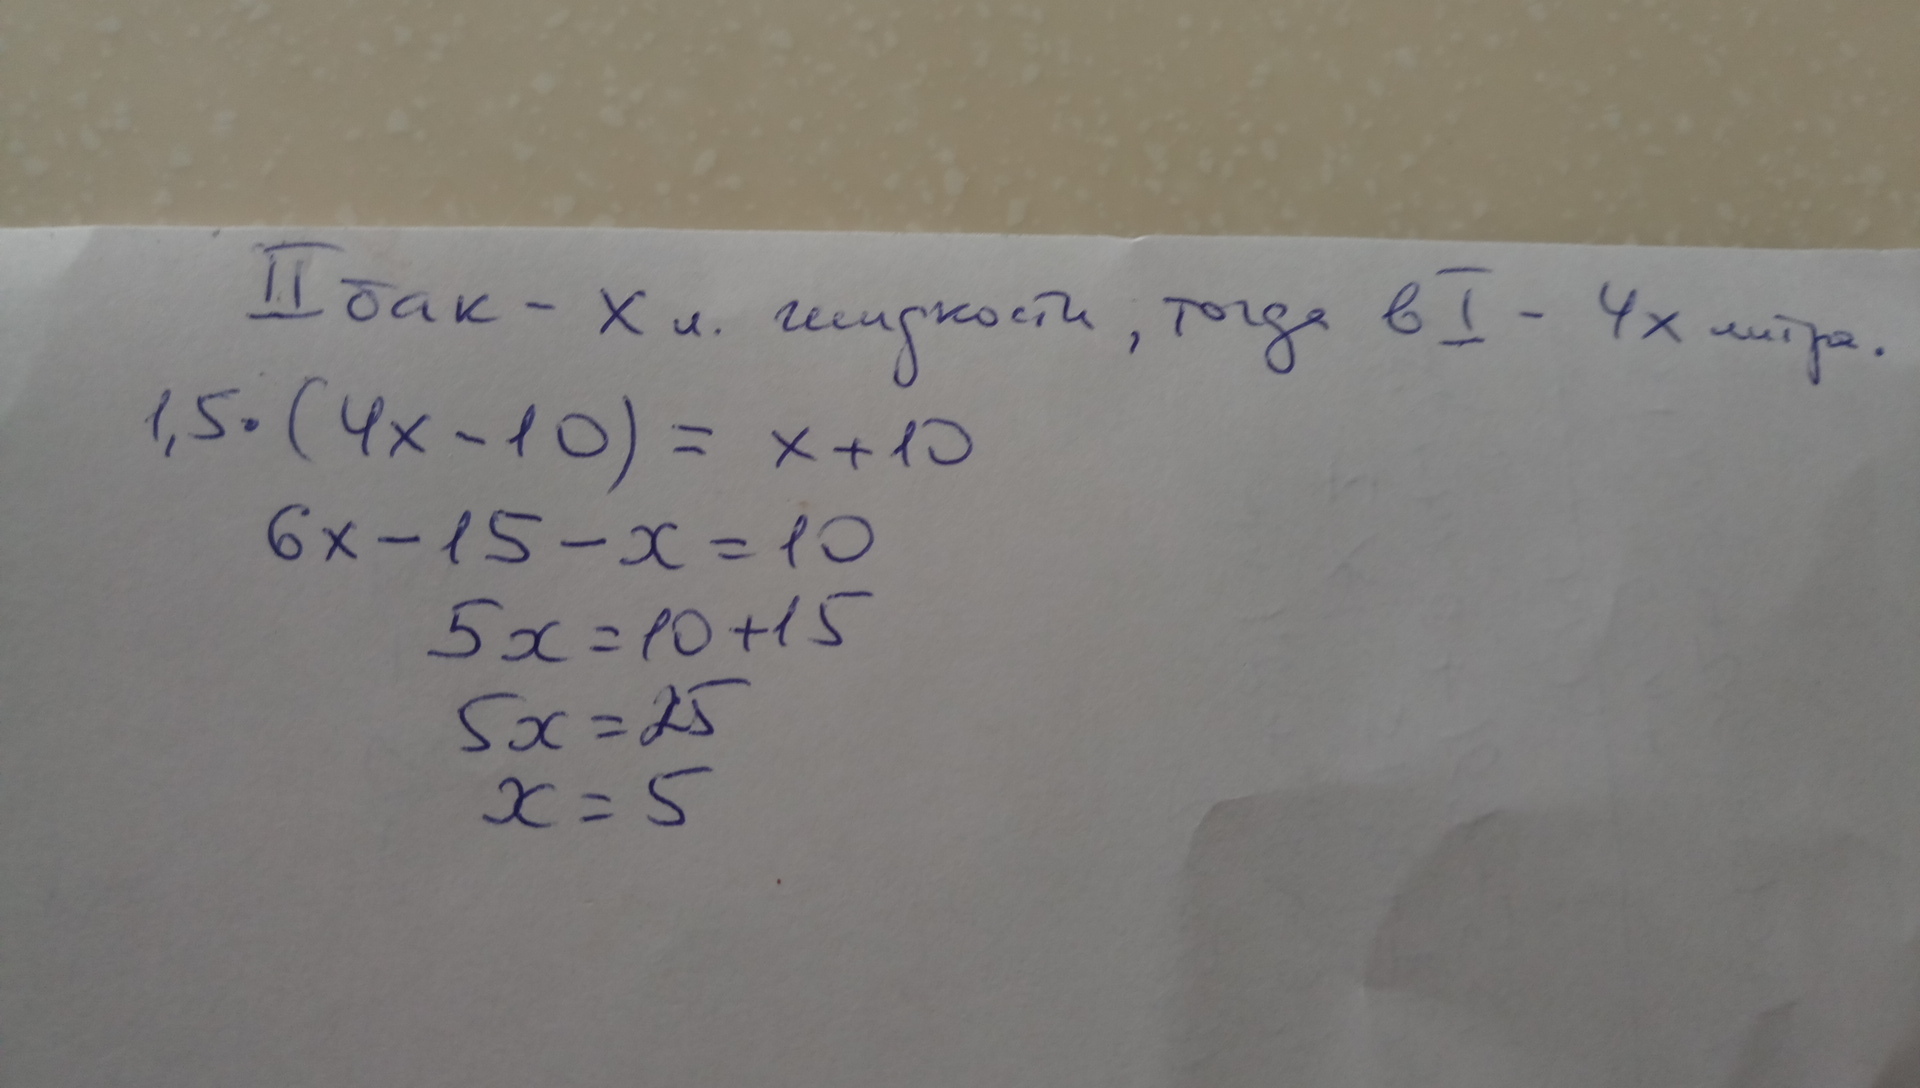 II бак - x л. жидкости, тогда в I - 4x литра.
1,5·(4x-10) = x+10
6x-15-x=10
5x=10+15
5x=25
x=5